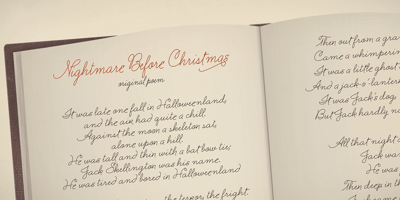 Nightmare Before Christmas
original poem
It was late one fall in Halloweenland,
and the air had quite a chill.
Against the moon a skeleton sat,
alone upon a hill.
He was tall and thin with a bat bow tie;
Jack Skellington was his name.
He was tired and bored in Halloweenland
the terror, the fright.
Then out from a gra
Came a whimperin
It was a little ghost
And a jack-o'-lanter
It was Jack's dog,
But Jack hardly no
All that night
Jack wa
He was
Then deep in th